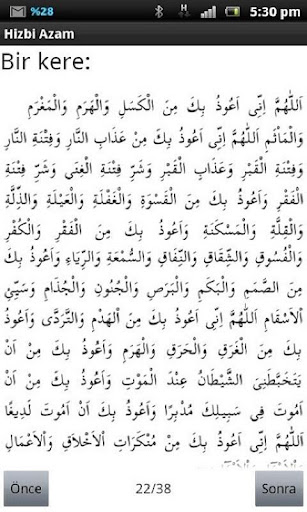 %28 H 5:30 pm
Hizbi Azam
Bir kere:
اَللّٰهُمَّ اِنِّى اَعُوذُ بِكَ مِنَ الْكَسَلِ وَالْهَرَمِ وَالْمَغْرَمِ
وَالْمَاْثَمِ اَللّٰهُمَّ اِنِّى اَعُوذُ بِكَ مِنْ عَذَابِ النَّارِ وَفِتْنَةِ النَّارِ
وَفِتْنَةِ الْقَبْرِ وَعَذَابِ الْقَبْرِ وَشَرِّ فِتْنَةِ الْغِنَى وَشَرِّ فِتْنَةِ
الْفَقْرِ وَاَعُوذُ بِكَ مِنَ الْقَسْوَةِ وَالْغَفْلَةِ وَالْعَيْلَةِ وَالذِّلَّةِ
وَالْقِلَّةِ وَالْمَسْكَنَةِ وَاَعُوذُ بِكَ مِنَ الْفَقْرِ وَالْكُفْرِ
وَالْفُسُوقِ وَالشِّقَاقِ وَالنِّفَاقِ وَالسُّمْعَةِ وَالرِّيَاءِ وَاَعُوذُ بِكَ
مِنَ الصَّمَمِ وَالْبَكَمِ وَالْبَرَصِ وَالْجُنُونِ وَالْجُذَامِ وَسَيِّئِ
الْاَسْقَامِ اَللّٰهُمَّ اِنِّى اَعُوذُ بِكَ مِنَ الْهَدْمِ وَالتَّرَدِّى وَاَعُوذُ
بِكَ مِنَ الْغَرَقِ وَالْحَرَقِ وَالْهَرَمِ وَاَعُوذُ بِكَ مِنْ اَنْ
يَتَخَبَّطَنِىَ الشَّيْطَانُ عِنْدَ الْمَوْتِ وَاَعُوذُ بِكَ مِنْ اَنْ
اَمُوتَ فِى سَبِيلِكَ مُدْبِرًا وَاَعُوذُ بِكَ اَنْ اَمُوتَ لَدِيغًا
اَللّٰهُمَّ اِنِّى اَعُوذُ بِكَ مِنْ مُنْكَرَاتِ الْاَخْلَاقِ وَالْاَعْمَالِ
Önce 22/38 Sonra